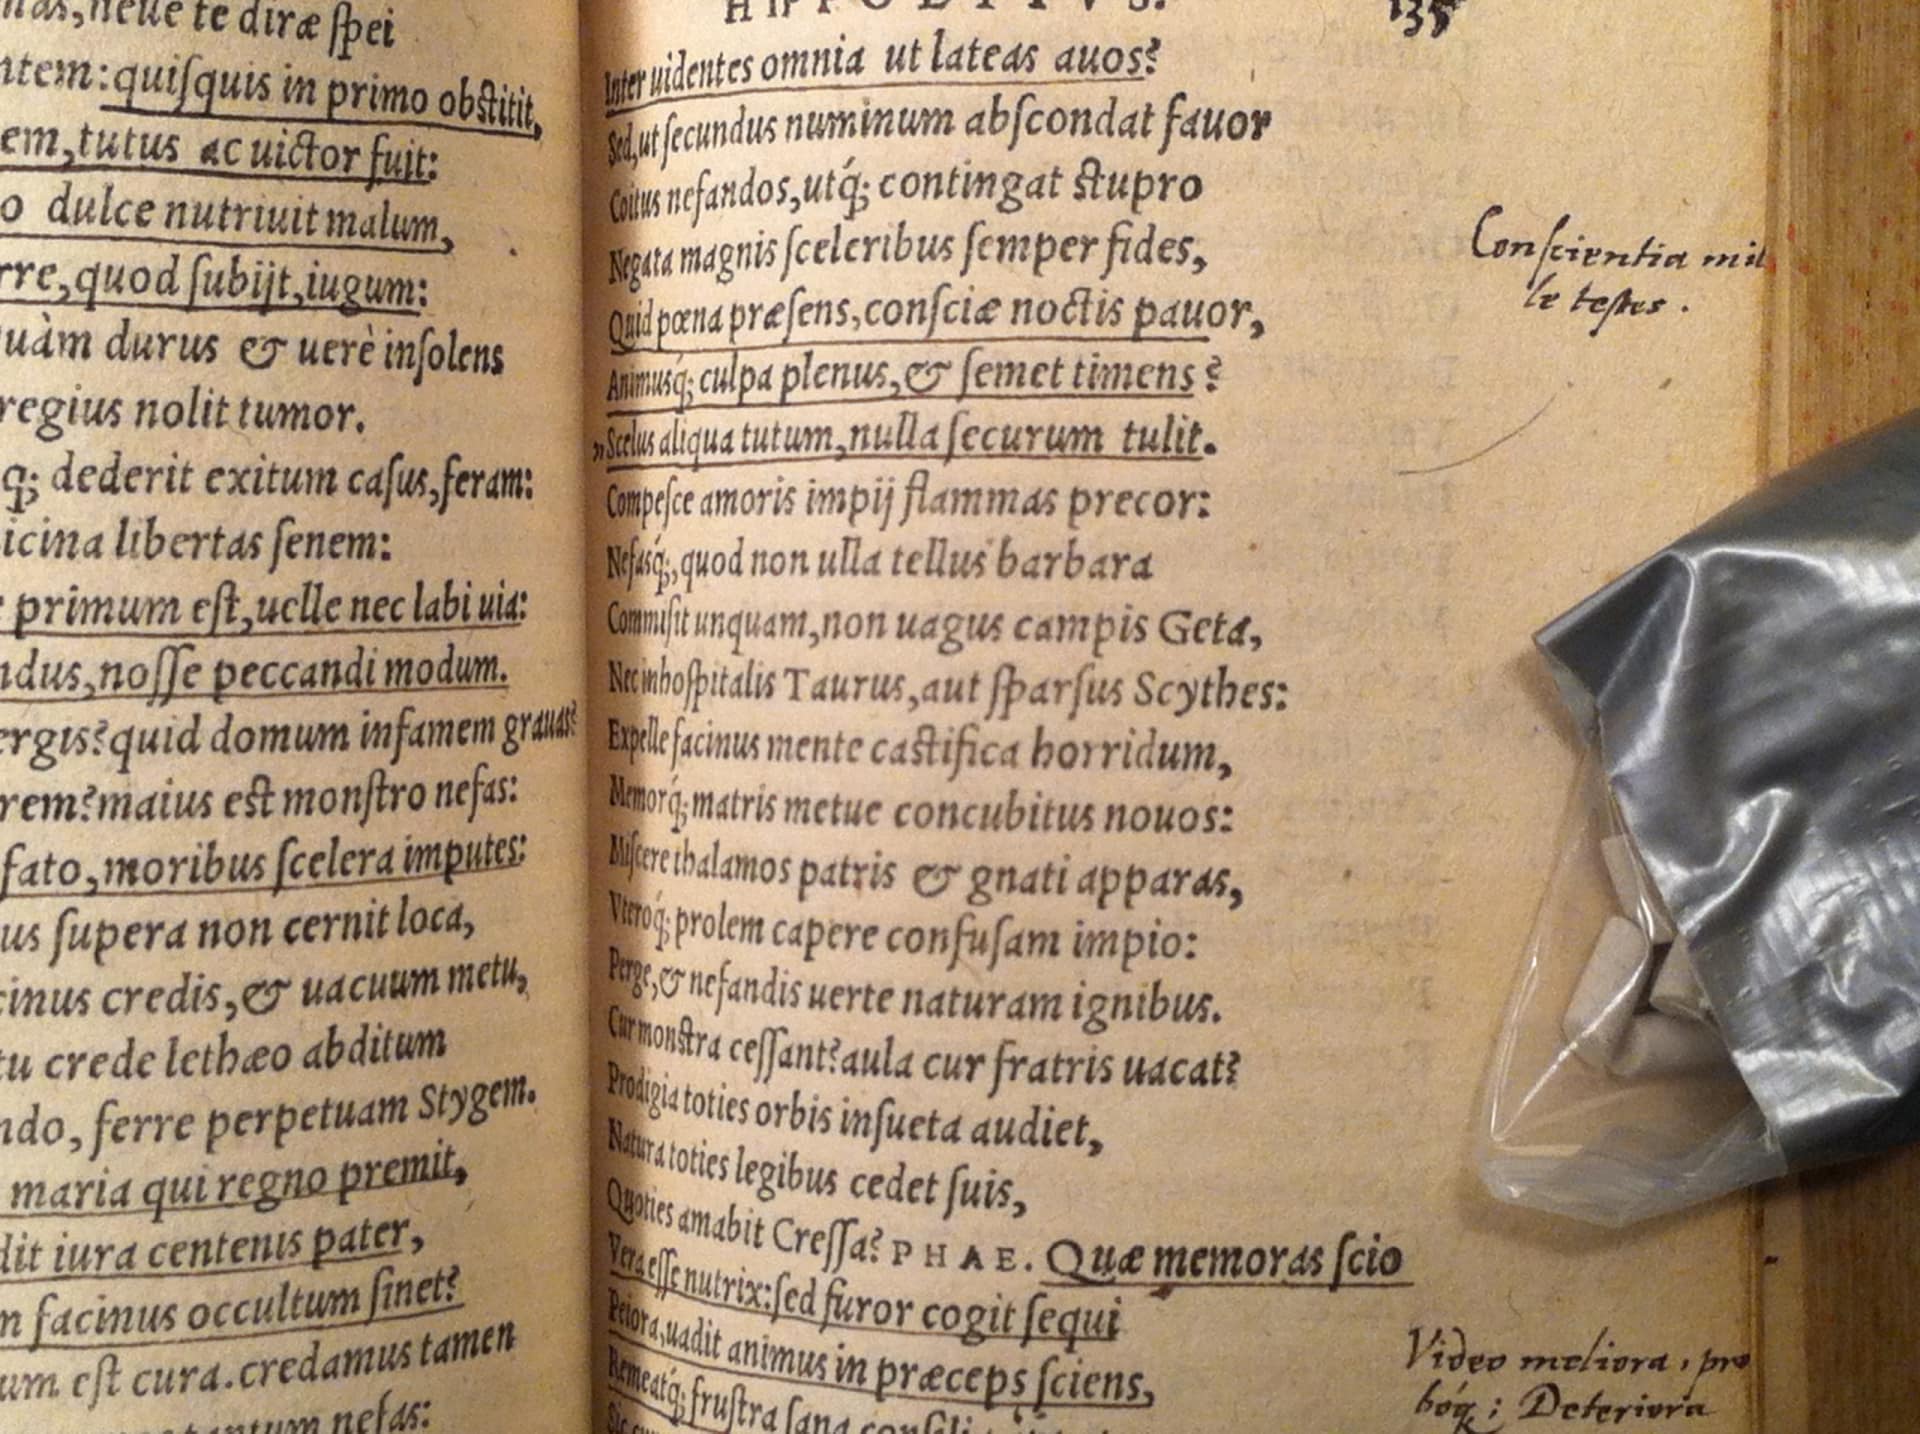 neue te diræ ſpei
ntem: quiſquis in primo obſtitit,
em, tutus ac uictor fuit:
o dulce nutriuit malum,
rre, quod ſubijt, iugum:
uàm durus & uerè inſolens
regius nolit tumor.
q; dederit exitum caſus, feram:
icina libertas ſenem:
primum eſt, uelle nec labi uia:
ndus, noſſe peccandi modum.
ergis? quid domum infamem grauas?
rem? maius est monſtro nefas:
fato, moribus ſcelera imputes:
us ſupera non cernit loca,
cinus credis, & uacuum metu,
tu crede lethæo abditum
ndo, ferre perpetuam Stygem.
maria qui regno premit,
dit iura centenis pater,
n facinus occultum ſinet?
um eſt cura. credamus tamen
tantum nefas:
HIPPOLITVS.
135
Inter uidentes omnia ut lateas auos?
Sed, ut ſecundus numinum abſcondat fauor
Coitus nefandos, utq́; contingat ſtupro
Negata magnis ſceleribus ſemper fides,
Quid pœna præſens, conſciæ noctis pauor,
Animusq́; culpa plenus, & ſemet timens?
„Scelus aliqua tutum, nulla ſecurum tulit.
Compeſce amoris impij flammas precor:
Nefasq́;, quod non ulla tellus barbara
Commiſit unquam, non uagus campis Geta,
Nec inhoſpitalis Taurus, aut ſparſus Scythes:
Expelle facinus mente caſtifica horridum,
Memorq́; matris metue concubitus nouos:
Miſcere thalamos patris & gnati apparas,
Vteroq́; prolem capere confuſam impio:
Perge, & nefandis uerte naturam ignibus.
Cur monſtra ceſſant? aula cur fratris uacat?
Prodigia toties orbis inſueta audiet,
Natura toties legibus cedet ſuis,
Quoties amabit Creſſa? PHAE. Quæ memoras ſcio
Vera eſſe nutrix: ſed furor cogit ſequi
Peiora, uadit animus in præceps ſciens,
Remeatq́; fruſtra ſana conſili
Conſcientia mil
le teſtes.
Video meliora, pro
boq́; Deteriora